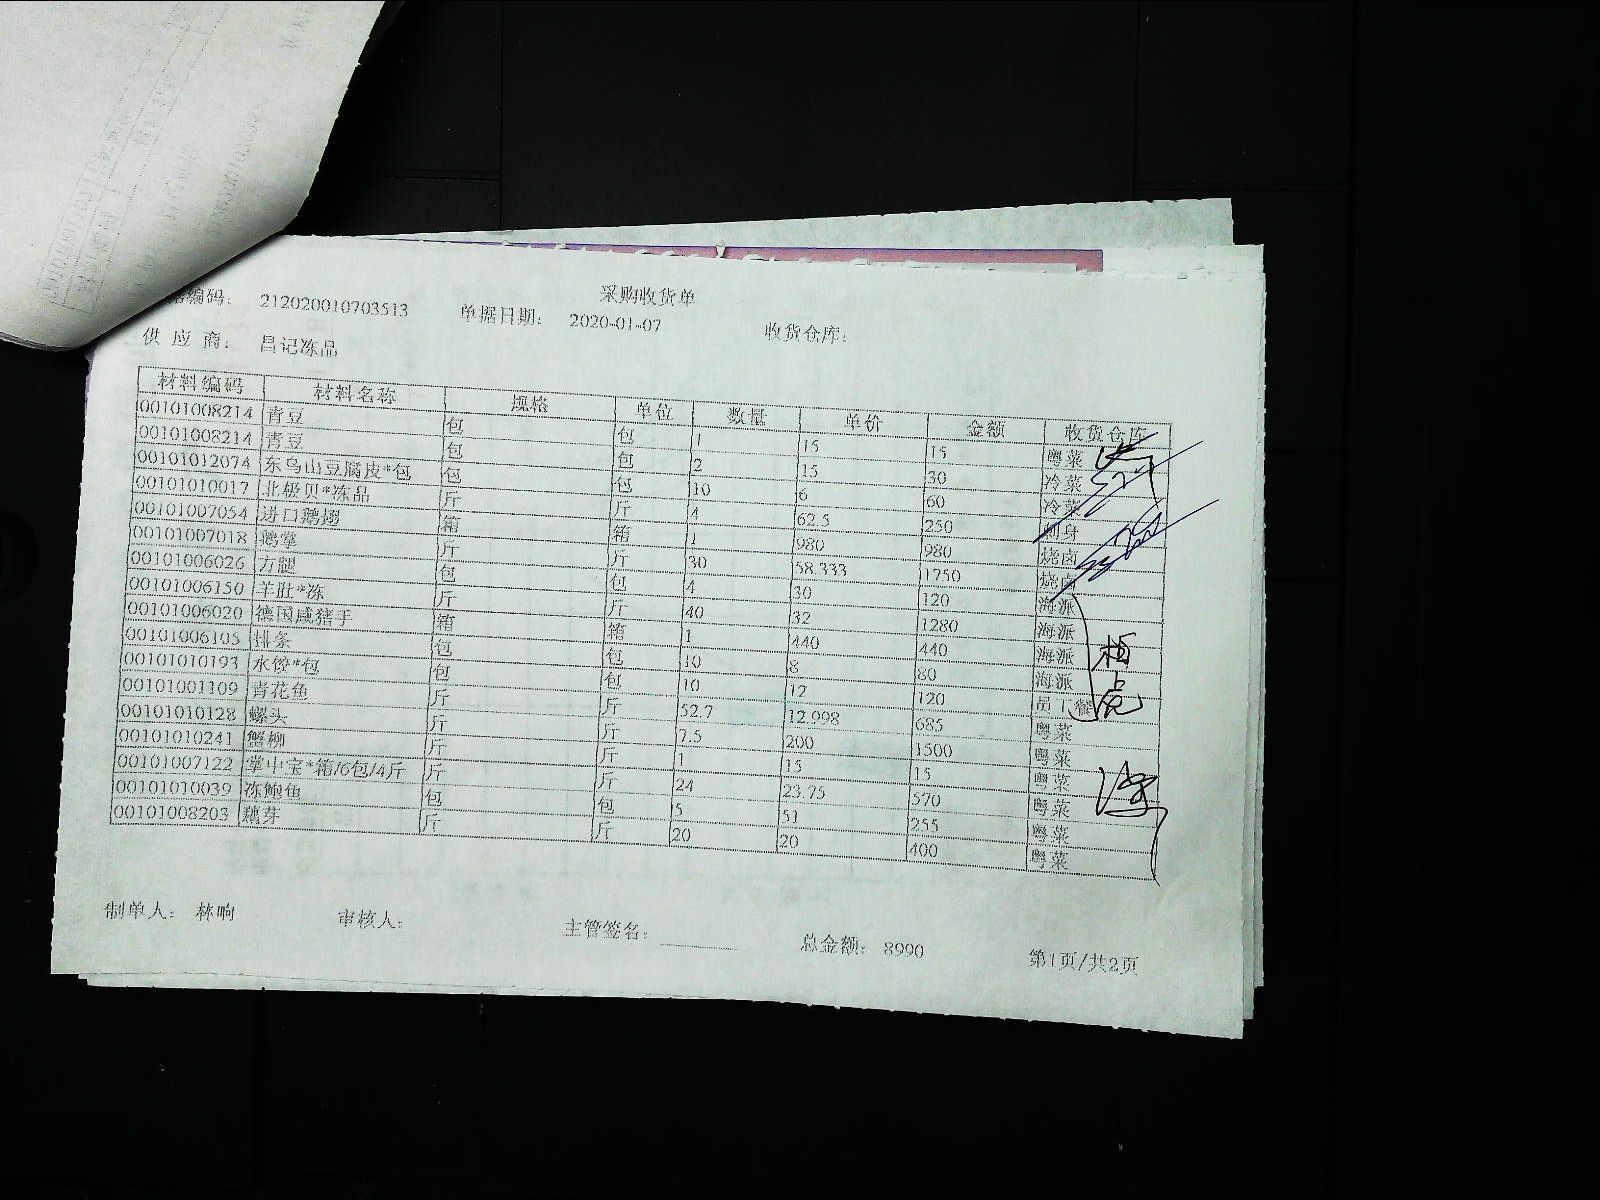 采购收货单
编码： 212020010703513 单据日期： 2020-01-07 收货仓库：
供 应 商： 昌记冻品
材料编码 材料名称 规格 单位 数量 单价 金额 收货仓库
00101008214 青豆 包 包 1 15 15 粤菜
00101008214 青豆 包 包 2 15 30 冷菜
00101012074 东乌山豆腐皮*包 包 包 10 6 60 冷菜
00101010017 北极贝*冻品 斤 斤 4 62.5 250 刺身
00101007054 进口鹅翅 箱 箱 1 980 980 烧卤
00101007018 鹅掌 斤 斤 30 58.333 1750 烧卤
00101006026 方腿 包 包 4 30 120 海派
00101006150 羊肚*冻 斤 斤 40 32 1280 海派
00101006020 德国咸猪手 箱 箱 1 440 440 海派
00101006105 排条 包 包 10 8 80 海派
00101010193 水饺*包 包 包 10 12 120 员工餐
00101001109 青花鱼 斤 斤 52.7 12.998 685 粤菜
00101010128 螺头 斤 斤 7.5 200 1500 粤菜
00101010241 蟹柳 斤 斤 1 15 15 粤菜
00101007122 掌中宝*箱/6包/4斤 斤 斤 24 23.75 570 粤菜
00101010039 冻鲍鱼 包 包 5 51 255 粤菜
00101008203 藕芽 斤 斤 20 20 400 粤菜
制单人： 林响 审核人： 主管签名： 总金额： 8990 第1页/共2页